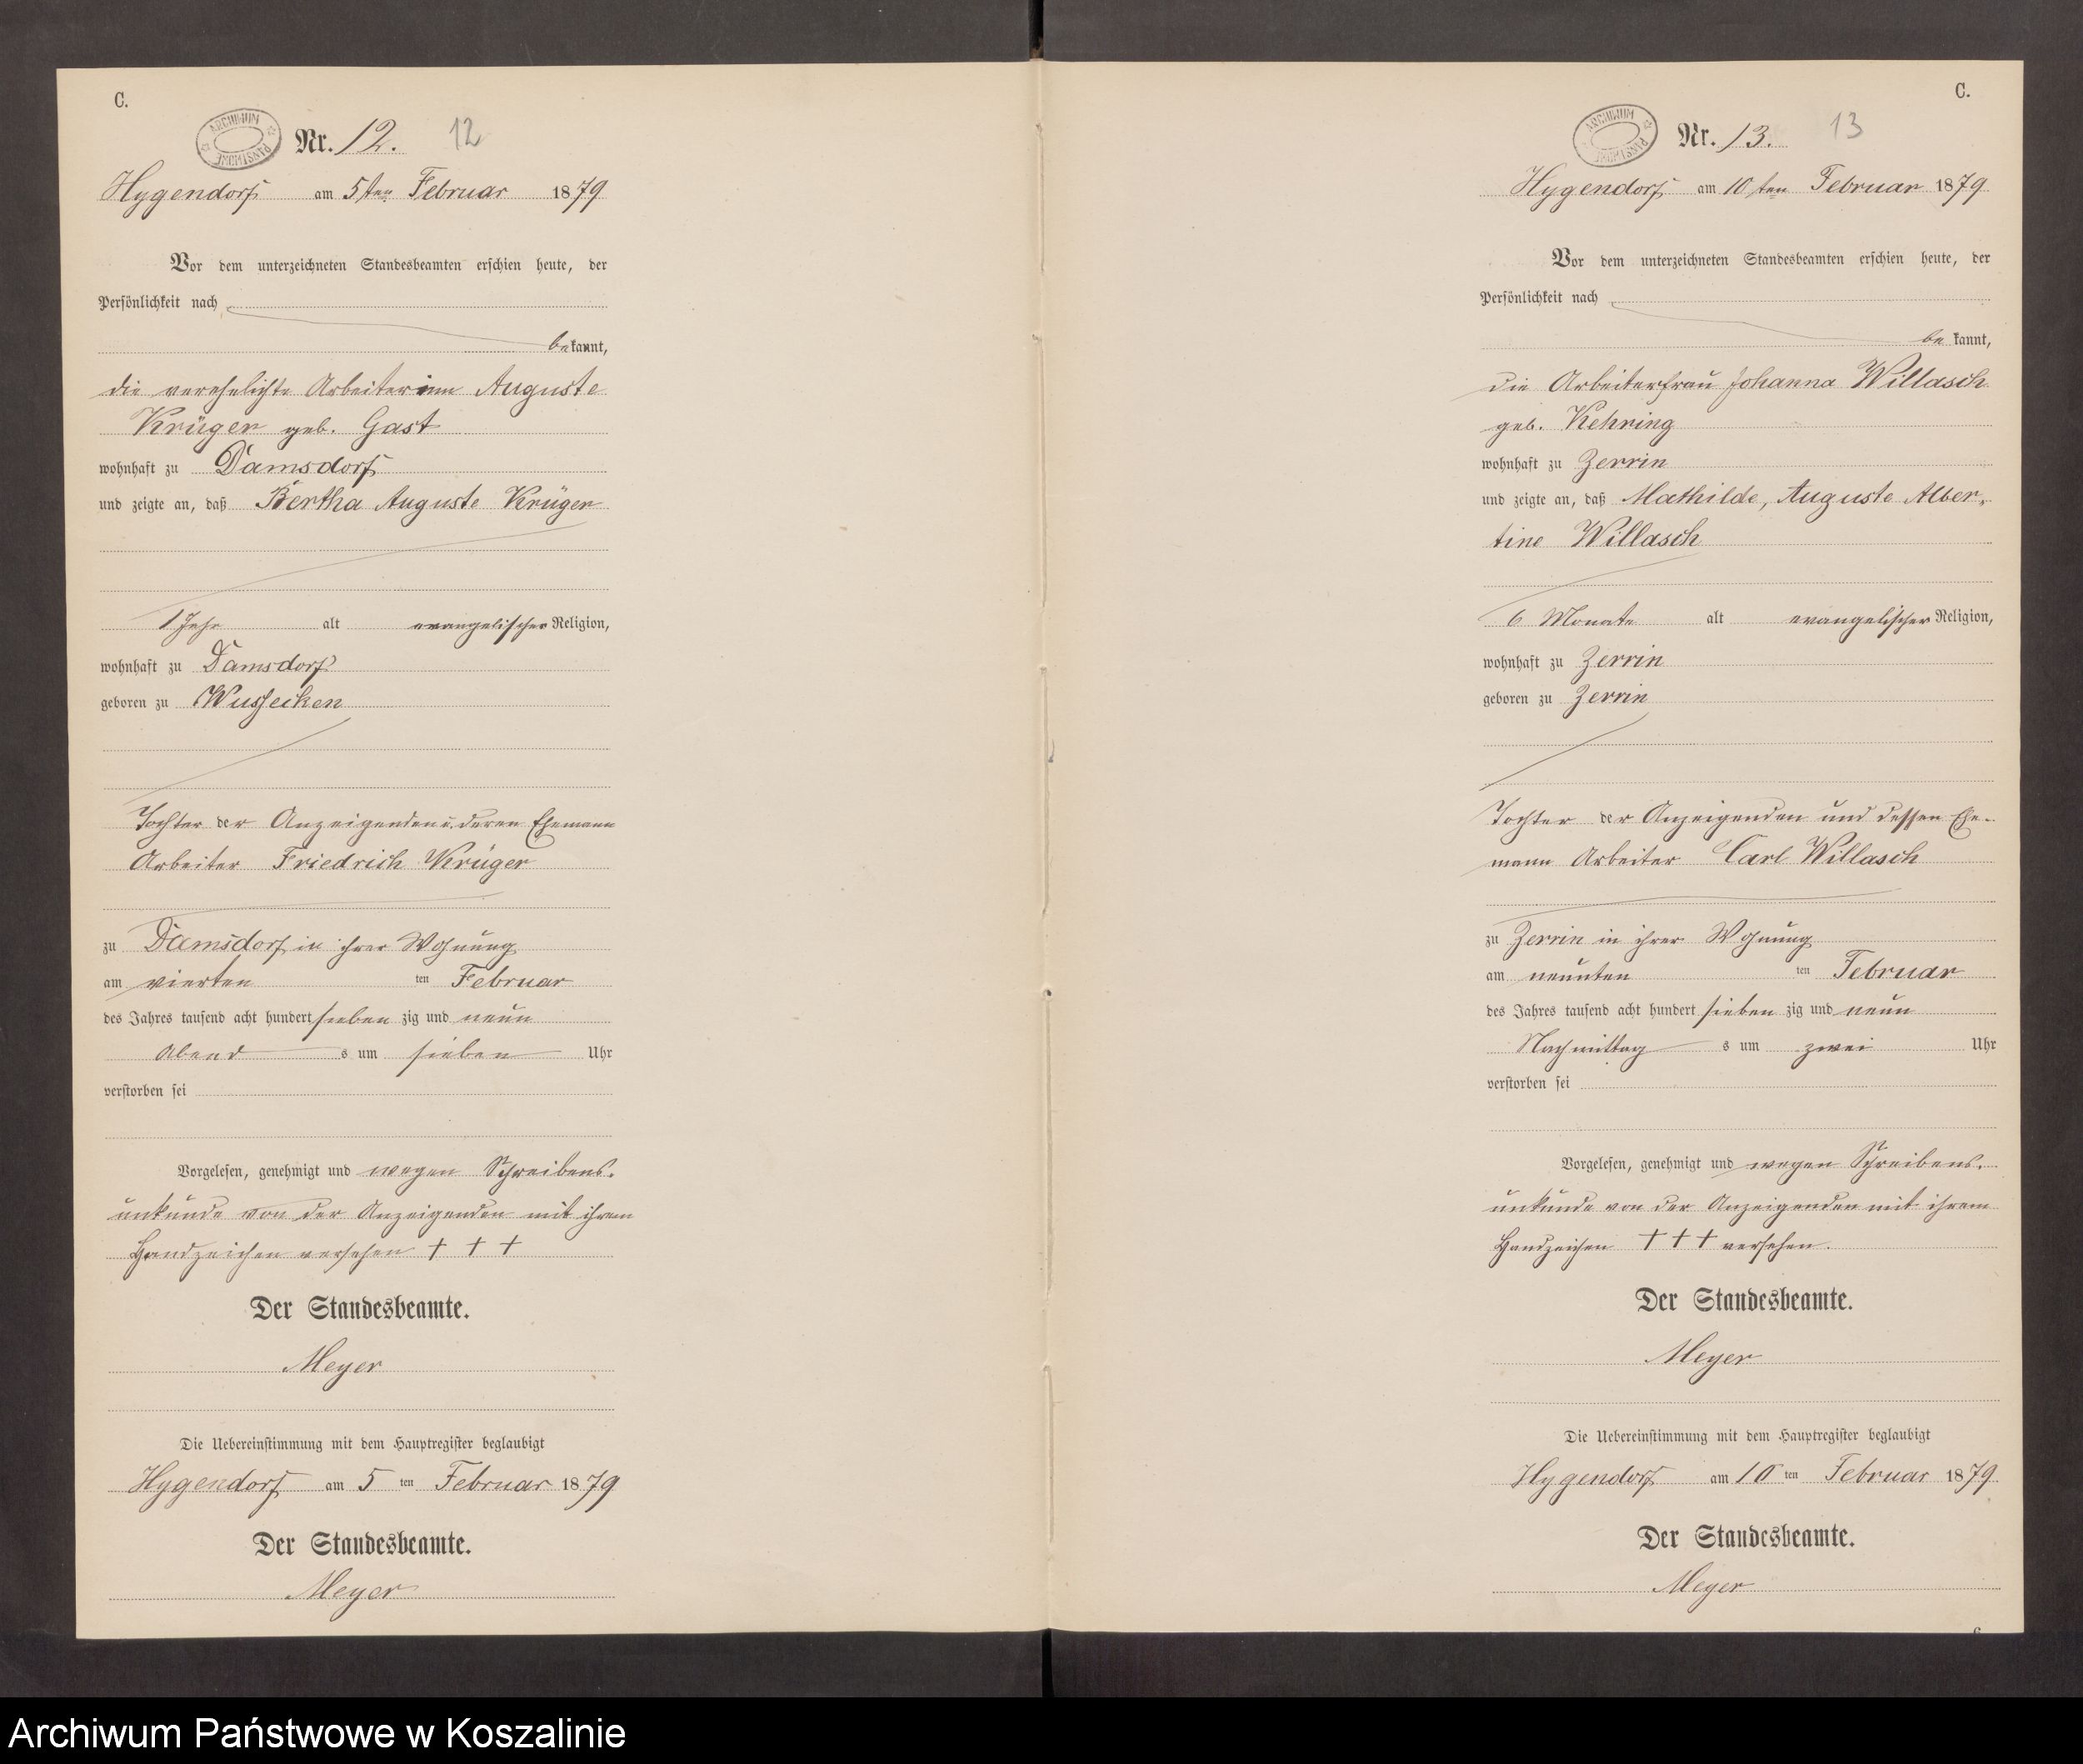 C.
ARCHIWUM PAŃSTWOWE
Nr. 12.
12
Hygendorf am 5ten Februar 1879
Vor dem unterzeichneten Standesbeamten erschien heute, der
Persönlichkeit nach
bekannt,
die verehelichte Arbeiterinn Auguste
Krüger geb. Gast
wohnhaft zu Damsdorf
und zeigte an, daß Bertha Auguste Krüger
1 Jahr alt evangelischer Religion,
wohnhaft zu Damsdorf
geboren zu Wussecken
Tochter der Anzeigenden u. deren Ehemann
Arbeiter Friedrich Krüger
zu Damsdorf in ihrer Wohnung
am vierten ten Februar
des Jahres tausend acht hundert sieben zig und neun
Abend s um sieben Uhr
verstorben sei
Vorgelesen, genehmigt und wegen Schreibens-
unkunde von der Anzeigenden mit ihrem
Handzeichen versehen + + +
Der Standesbeamte.
Meyer
Die Uebereinstimmung mit dem Hauptregister beglaubigt
Hygendorf am 5 ten Februar 1879
Der Standesbeamte.
Meyer
C.
ARCHIWUM PAŃSTWOWE
Nr. 13.
13
Hygendorf am 10 ten Februar 1879
Vor dem unterzeichneten Standesbeamten erschien heute, der
Persönlichkeit nach
be kannt,
die Arbeiterfrau Johanna Willasch
geb. Kehring
wohnhaft zu Zerrin
und zeigte an, daß Mathilde, Auguste Alber-
tine Willasch
6 Monate alt evangelischer Religion,
wohnhaft zu Zerrin
geboren zu Zerrin
Tochter der Anzeigenden und dessen Ehe-
mann Arbeiter Carl Willasch
zu Zerrin in ihrer Wohnung
am neunten ten Februar
des Jahres tausend acht hundert sieben zig und neun
Nachmittag s um zwei Uhr
verstorben sei
Vorgelesen, genehmigt und wegen Schreibens-
unkunde von der Anzeigenden mit ihrem
Handzeichen + + + versehen.
Der Standesbeamte.
Meyer
Die Uebereinstimmung mit dem Hauptregister beglaubigt
Hygendorf am 10 ten Februar 1879
Der Standesbeamte.
Meyer
Archiwum Państwowe w Koszalinie